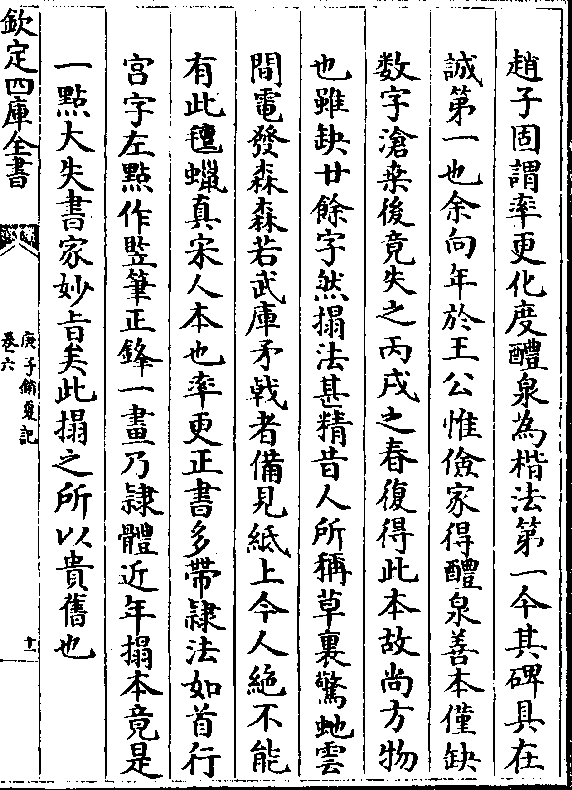 趙子固謂率更化度醴泉為楷法第一今其碑具在
誠第一也余向年於王公惟儉家得醴泉善本僅缺
数字滄桒後竟失之丙戌之春復得此本故尚方物
也雖缺廿餘字然搨法甚精昔人所稱草裏驚虵雲
間電發森森若武庫矛戟者備見紙上今人絶不能
有此氊蠟真宋人本也率更正書多帶隷法如首行
宫字左點作竪筆正鋒一畫乃隷體近年搨本竟是
一點大失書家妙旨矣此搨之所以貴舊也
欽定四庫全書
庚子銷夏記
卷六
十一